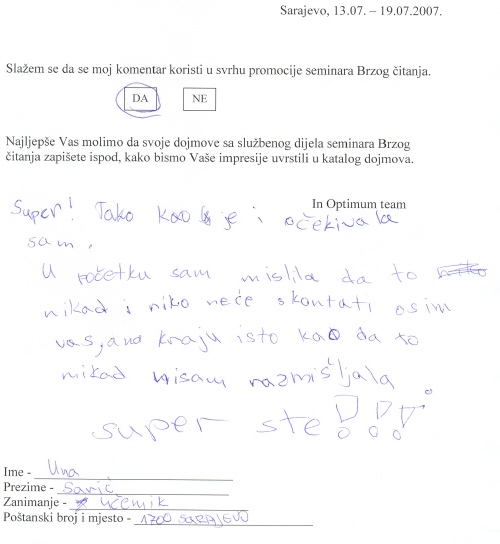 Sarajevo, 13.07. – 19.07.2007.
Slažem se da se moj komentar koristi u svrhu promocije seminara Brzog čitanja.
DA NE
Najljepše Vas molimo da svoje dojmove sa službenog dijela seminara Brzog
čitanja zapišete ispod, kako bismo Vaše impresije uvrstili u katalog dojmova.
In Optimum team
Super! Tako kao je i očekivala
sam.
U početku sam mislila da to
nikad i niko neće skontati osim
vas, a na kraju isto kao da to
nikad nisam razmišljala
super ste!!!
Ime - Una
Prezime - Sarić
Zanimanje - učenik
Poštanski broj i mjesto - 1700 SARAJEVO